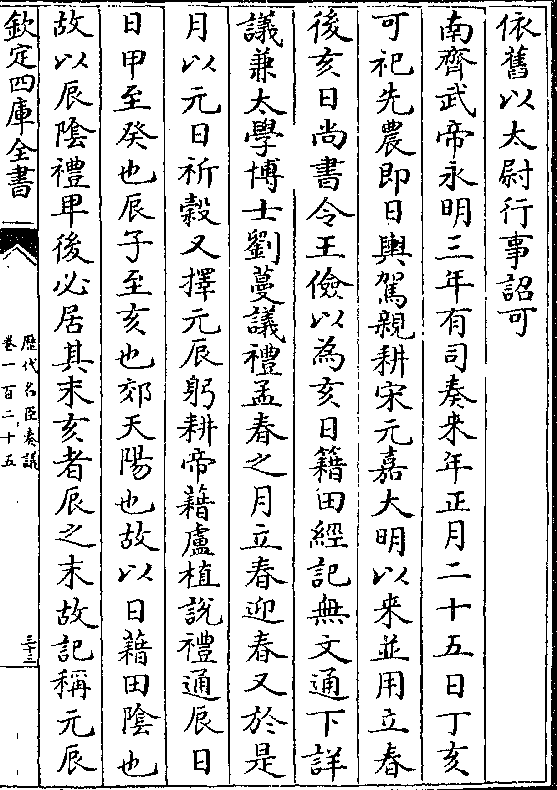 依舊以太尉行事詔可
南齊武帝永明三年有司奏来年正月二十五日丁亥
可祀先農即日輿駕親耕宋元嘉大明以来並用立春
後亥日尚書令王儉以為亥日籍田經記無文通下詳
議兼太學博士劉蔓議禮孟春之月立春迎春又於是
月以元日祈穀又擇元辰躬耕帝藉盧植說禮通辰日
日甲至癸也辰子至亥也郊天陽也故以日藉田陰也
故以辰陰禮卑後必居其末亥者辰之末故記稱元辰
欽定四庫全書
歷代名臣奏議
卷一百二十五
三十三